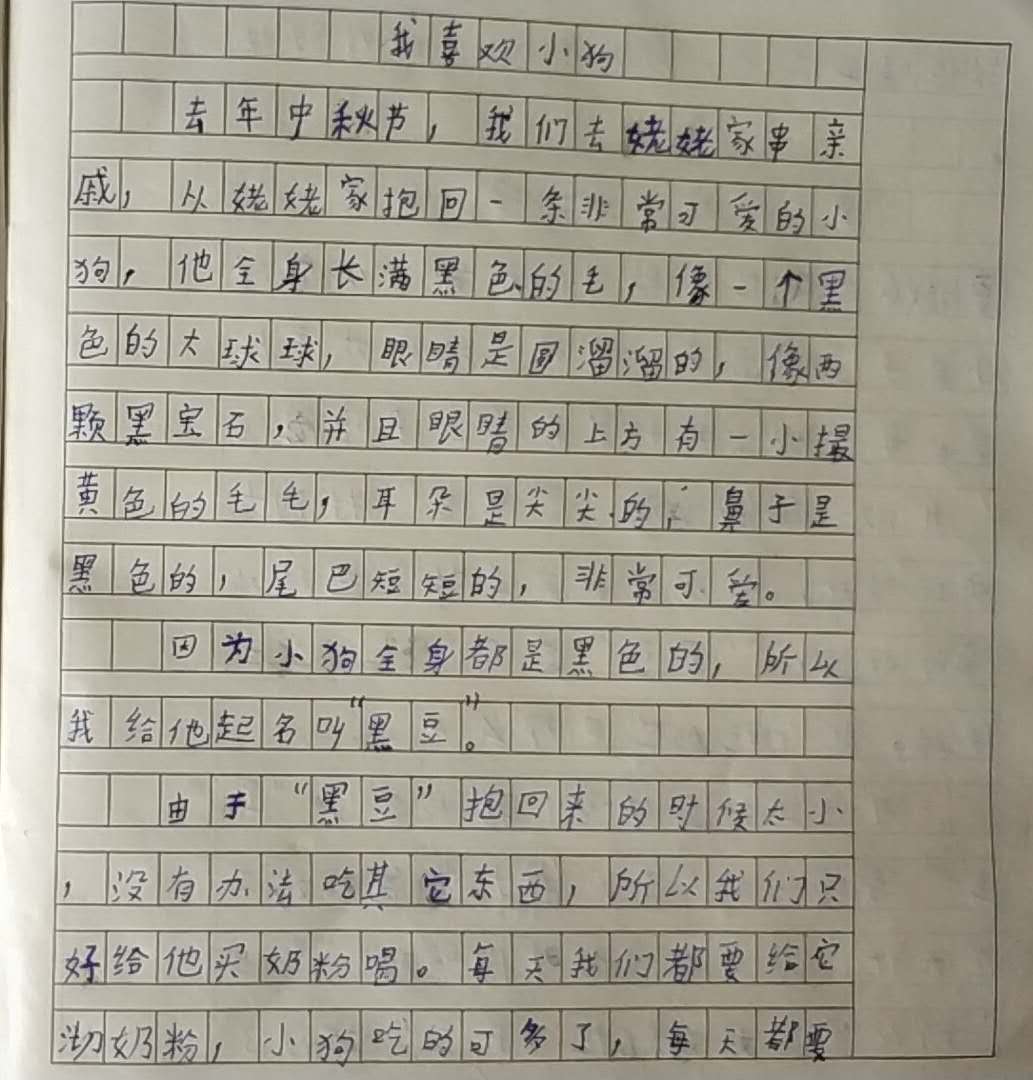 我喜欢小狗
去年中秋节，我们去姥姥家串亲
戚，从姥姥家抱回一条非常可爱的小
狗，他全身长满黑色的毛，像一个黑
色的大球球，眼睛是圆溜溜的，像两
颗黑宝石，并且眼睛的上方有一小撮
黄色的毛毛，耳朵是尖尖的，鼻子是
黑色的，尾巴短短的，非常可爱。
因为小狗全身都是黑色的，所以
我给他起名叫“黑豆”。
由于“黑豆”抱回来的时候太小
，没有办法吃其它东西，所以我们只
好给他买奶粉喝。每天我们都要给它
沏奶粉，小狗吃的可多了，每天都要